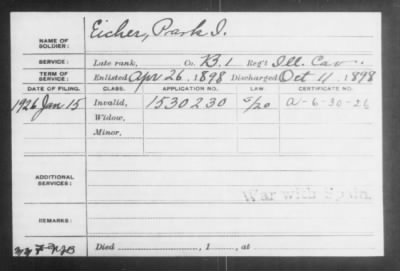 NAME OF SOLDIER: Eicher, Park I.
SERVICE: Late rank, Co. B. 1 Reg't Ill. Cav.
TERM OF SERVICE: Enlisted Apr 26, 1898 Discharged Oct 11, 1898
DATE OF FILING. CLASS. APPLICATION NO. LAW. CERTIFICATE NO.
1926 Jan 15 Invalid, 1530230 5/20 A-6-30-26
Widow,
Minor,
ADDITIONAL SERVICES:
War with Spain.
REMARKS:
Died , 1 , at